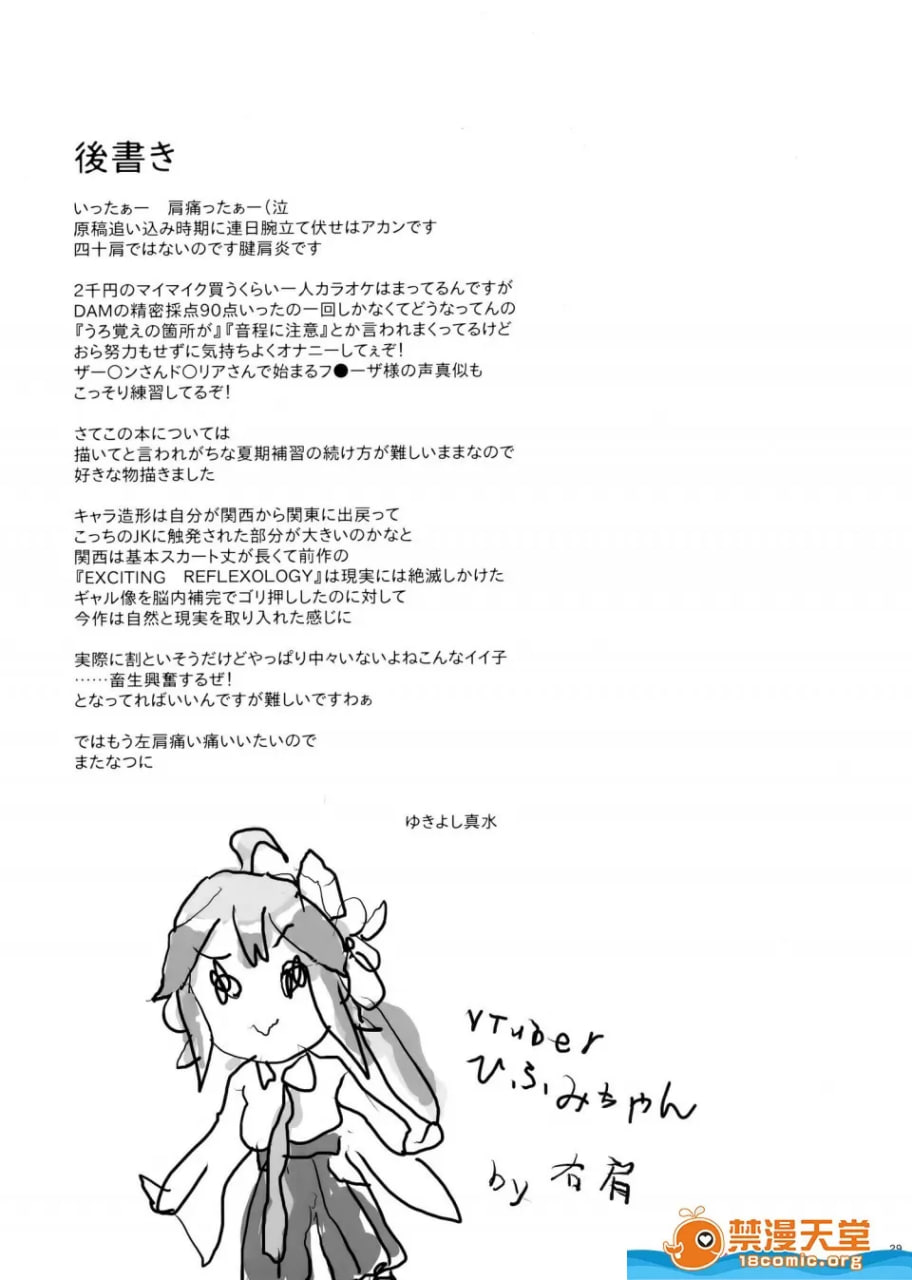 後書き
いったぁー　肩痛ったぁー（泣
原稿追い込み時期に連日腕立て伏せはアカンです
四十肩ではないのです腱肩炎です
2千円のマイマイク買うくらい一人カラオケはまってるんですが
DAMの精密採点90点いったの一回しかなくてどうなってんの
『うろ覚えの箇所が』『音程に注意』とか言われまくってるけど
おら努力もせずに気持ちよくオナニーしてぇぞ！
ザー〇ンさんド〇リアさんで始まるフ●ーザ様の声真似も
こっそり練習してるぞ！
さてこの本については
描いてと言われがちな夏期補習の続け方が難しいままなので
好きな物描きました
キャラ造形は自分が関西から関東に出戻って
こっちのJKに触発された部分が大きいのかなと
関西は基本スカート丈が長くて前作の
『EXCITING　REFLEXOLOGY』は現実には絶滅しかけた
ギャル像を脳内補完でゴリ押ししたのに対して
今作は自然と現実を取り入れた感じに
実際に割といそうだけどやっぱり中々いないよねこんなイイ子
……畜生興奮するぜ！
となってればいいんですが難しいですわぁ
ではもう左肩痛い痛いいたいので
またなつに
ゆきよし真水
VTuber
ひふみちゃん
by 右肩
禁漫天堂
18comic.org
29